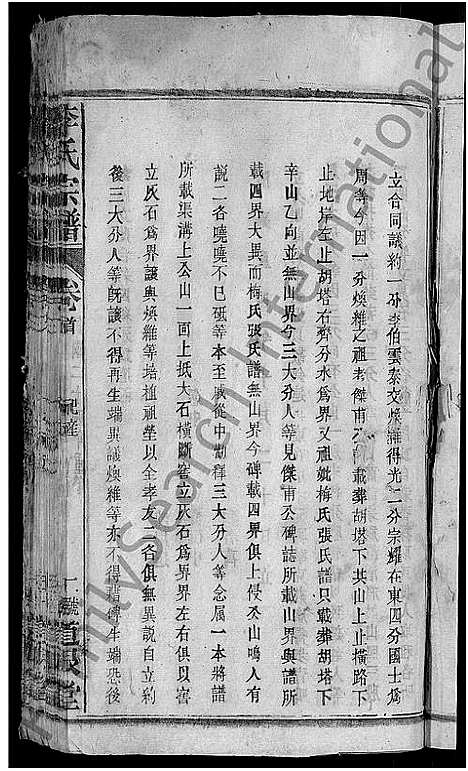 立合同議約一分李伯雲泰交煥維得光二分宗耀在東四分國士爲
周等今因一分煥維之祖老傑甫公譜載葬胡塔下共山上止橫路下
止地岸左止胡塔右齊分水爲界又祖妣梅氏張氏譜只載葬胡塔下
辛山乙向並無山界今三大分人等見傑甫公碑誌所載山界與譜所
載四界大異而梅氏張氏譜無山界今碑載四界俱上侵公山鳴人有
說二各曉曉不已砥等本至戚從中勸釋三大分人等念属一本將譜
所載渠溝上公山一面上抵大石橫斷窖立灰石爲界界左右俱以窖
立灰石爲界讓與煥維等培植祖塋以全孝友二各俱無異說自立約
後三大分人等旣讓不得再生端異議煥維等亦不得藉碑生端恐後
李氏宗譜
卷首
祀産
道裉堂
FamilySearch International